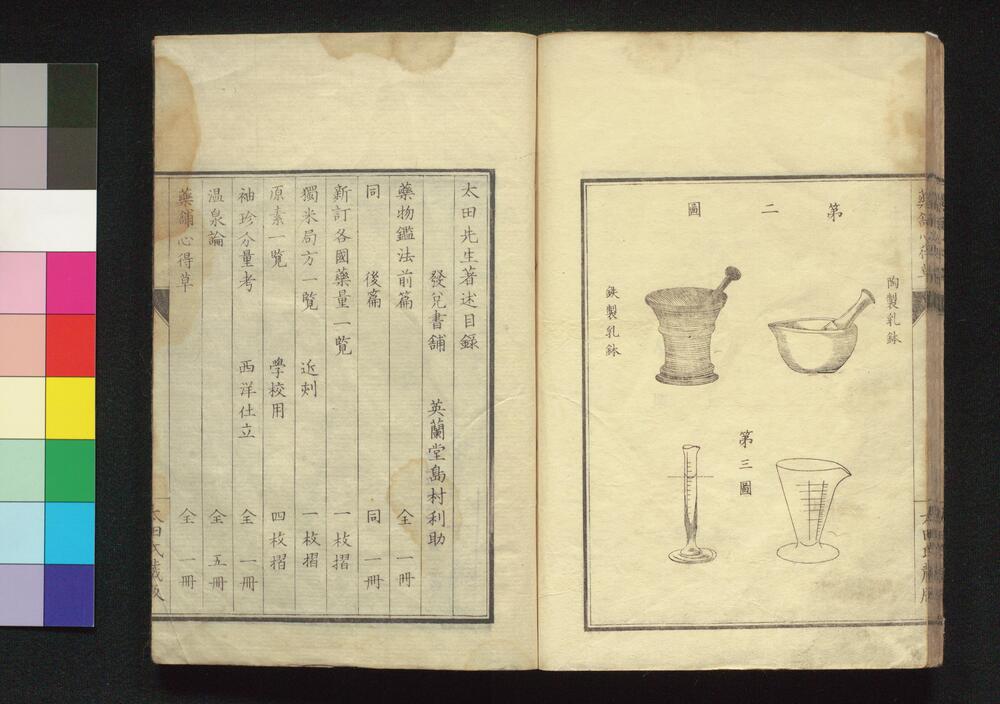 第二圖
陶製乳鉢
鉄製乳鉢
第三圖
太田先生著述目録
發兌書舗 英蘭堂島村利助
藥物鑑法前篇 全一冊
同 後篇 同一冊
新訂各國藥量一覧 一枚摺
獨米局方一覧 近刻 一枚摺
原素一覧 學校用 四枚摺
袖珍分量考 西洋仕立 全一冊
温泉論 全五冊
藥舗心得草 全一冊
太田氏蔵版